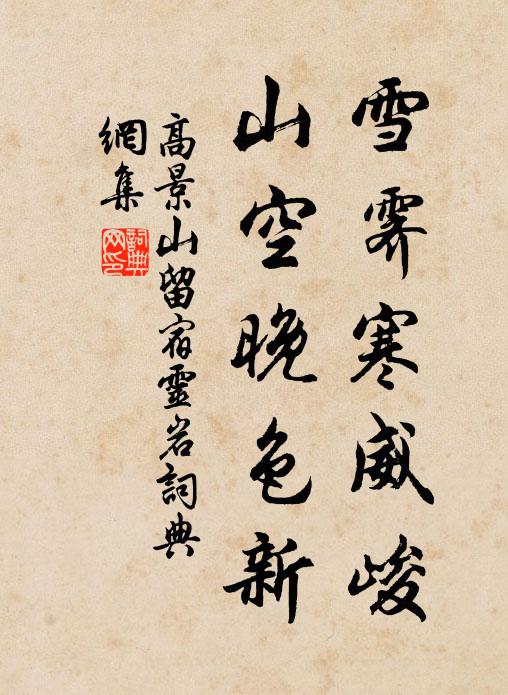 雪霽寒威峻
山空晚色新
高景山留宿靈岩詞典
網集
詞典
网印